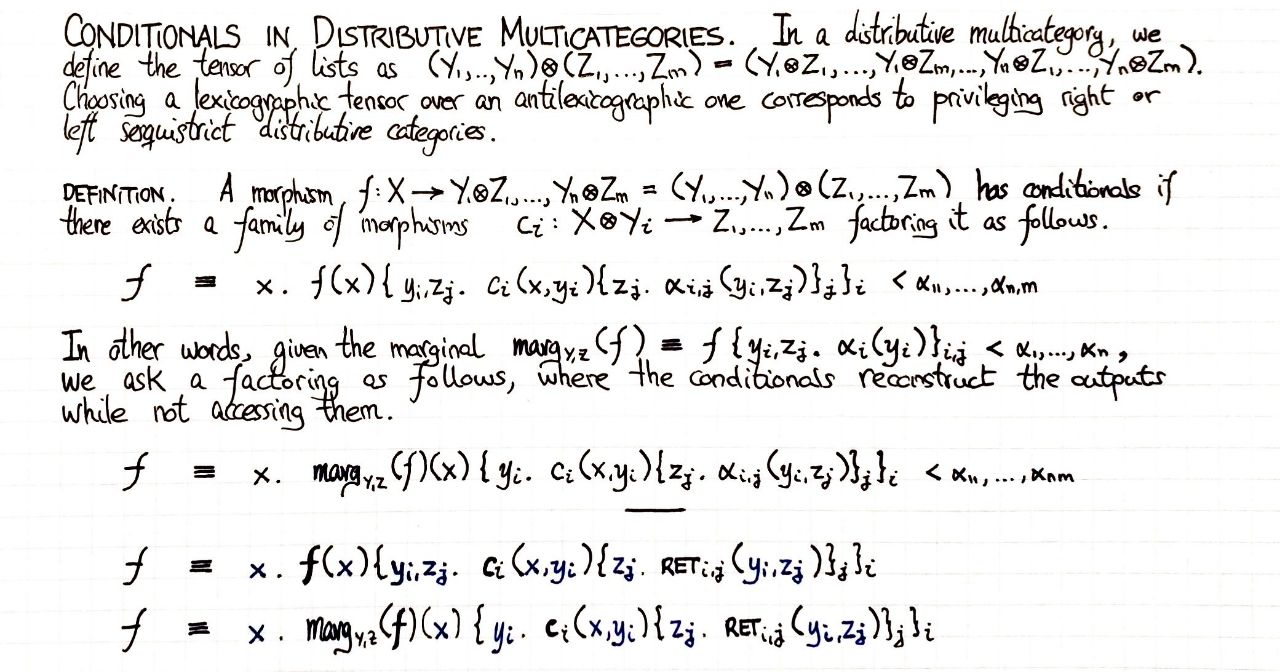 CONDITIONALS IN DISTRIBUTIVE MULTICATEGORIES. In a distributive multicategory, we
define the tensor of lists as (Y₁,..,Yₙ)⊗(Z₁,...,Zₘ) = (Y₁⊗Z₁,...,Y₁⊗Zₘ,...,Yₙ⊗Z₁,...,Yₙ⊗Zₘ).
Choosing a lexicographic tensor over an antilexicographic one corresponds to privileging right or
left sesquistrict distributive categories.
DEFINITION. A morphism f: X → Y₁⊗Z₁,..., Yₙ⊗Zₘ = (Y₁,...,Yₙ)⊗(Z₁,...,Zₘ) has conditionals if
there exists a family of morphisms cᵢ : X⊗Yᵢ → Z₁,...,Zₘ factoring it as follows.
f ≡ x. f(x){ yᵢ,zⱼ. cᵢ(x,yᵢ){zⱼ. αᵢ,ⱼ(yᵢ,zⱼ)}ⱼ}ᵢ < α₁₁,...,αₙ,ₘ
In other words, given the marginal marg_{Y,Z}(f) ≡ f {yᵢ,zⱼ. αᵢ(yᵢ)}ᵢ,ⱼ < α₁,...,αₙ ,
we ask a factoring as follows, where the conditionals reconstruct the outputs
while not accessing them.
f ≡ x. marg_{Y,Z}(f)(x) { yᵢ. cᵢ(x,yᵢ){zⱼ. αᵢ,ⱼ(yᵢ,zⱼ)}ⱼ}ᵢ < α₁₁,...,αₙₘ
f ≡ x. f(x){yᵢ,zⱼ. cᵢ(x,yᵢ){zⱼ. RETᵢ,ⱼ(yᵢ,zⱼ)}ⱼ}ᵢ
f ≡ x. marg_{Y,Z}(f)(x) { yᵢ. cᵢ(x,yᵢ){zⱼ. RETᵢ,ⱼ(yᵢ,zⱼ)}ⱼ}ᵢ